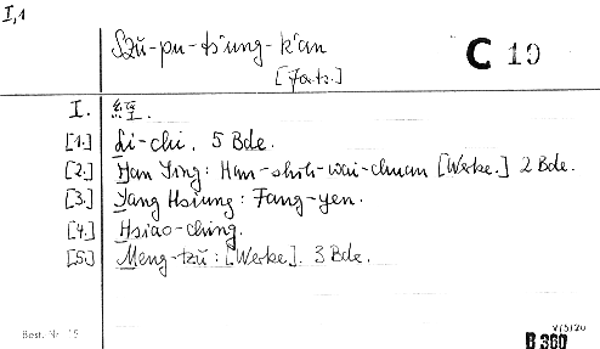 I,1
Szŭ-pu-ts'ung-k'an
C 10
[Fats.]
I. 經.
[1.] Li-chi. 5 Bde.
[2.] Han Ying: Han-shih-wai-chuan [Werke.] 2 Bde.
[3.] Yang Hsiung: Fang-yen.
[4.] Hsiao-ching.
[5.] Meng-tzŭ: [Werke]. 3 Bde.
Best. Nr. 15
B 360